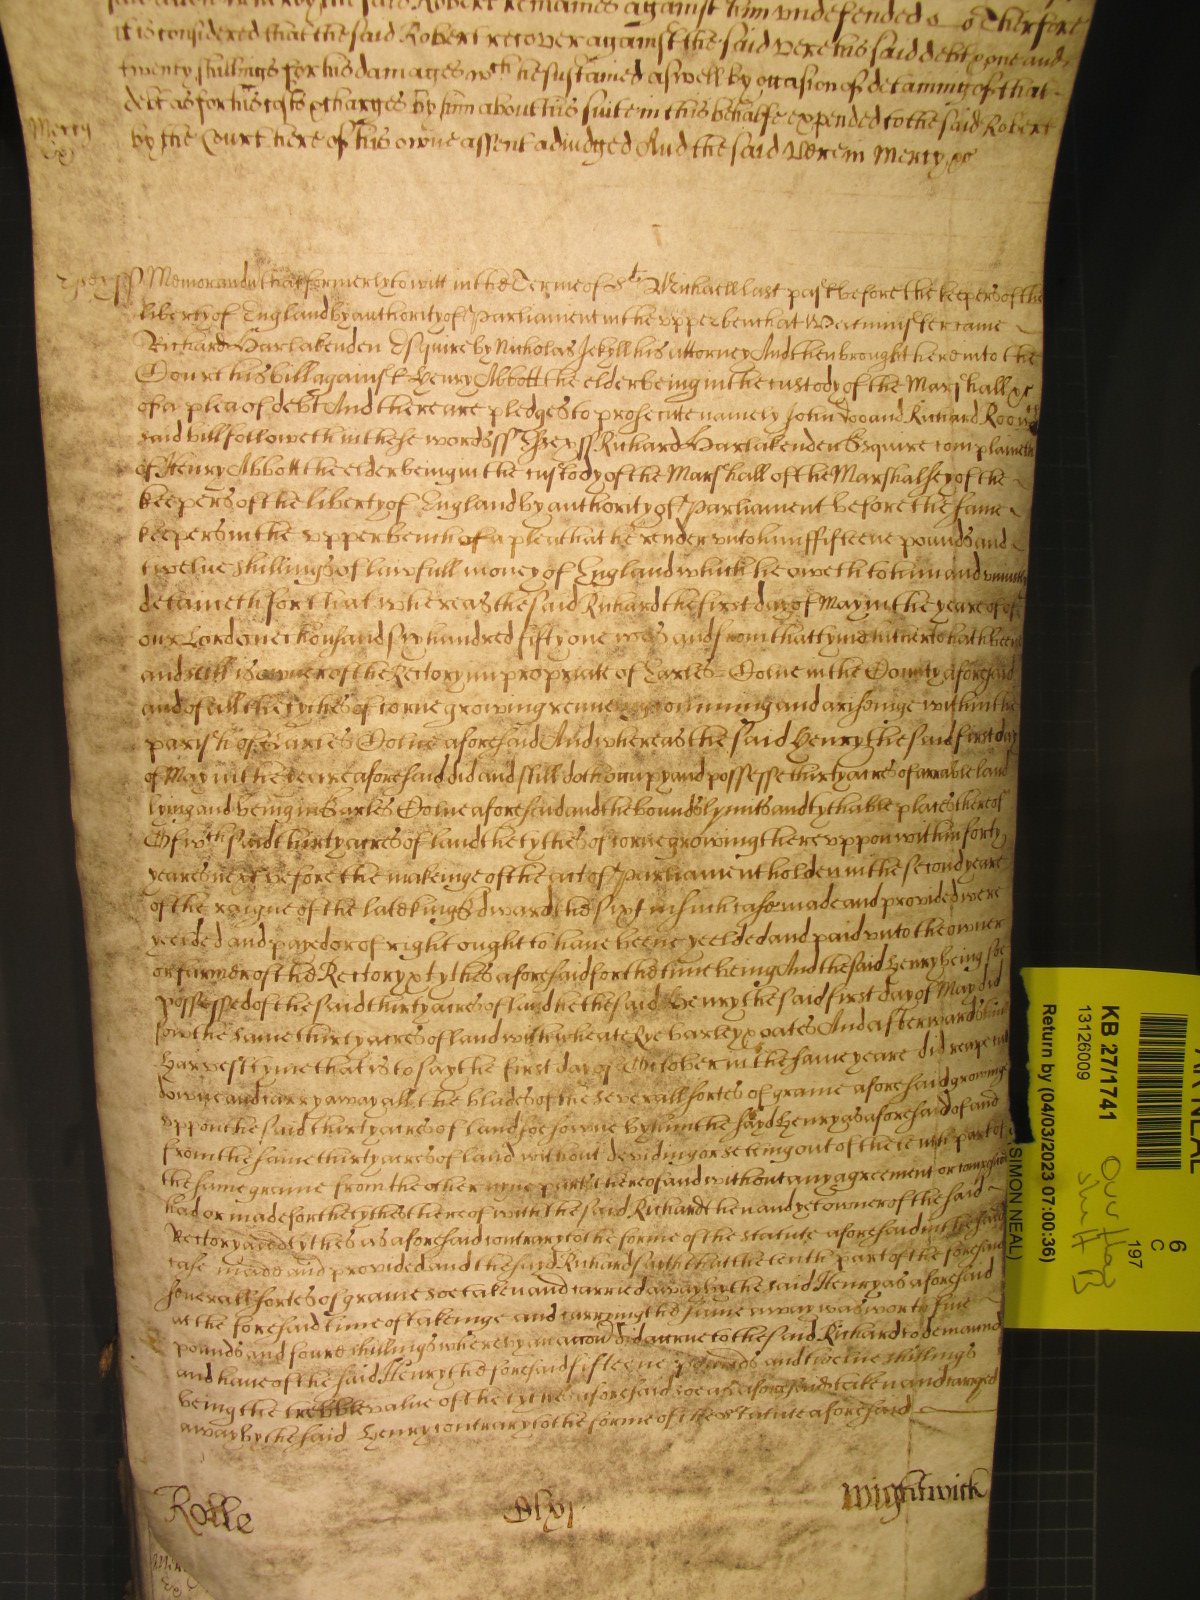 said Robert remaines against him undefended Therfore
it is considered that the said Robert recover against the said Vere his said debt & one and
twenty shillings for his damages wch he sustained aswell by occasion of detaining of that
debt as for his costs & charges by him about his suite in this behalfe expended to the said Robert
Mercy
by the Court here of his owne assent adiudged And the said Vere in Mercy &c
Essex ss Memorandu that formerly to witt in the Terme of St Michaell last past before the keepers of the
liberty of England by authority of Parliament in the upper bench at Westminster came
Richard Harlakenden Esquire by Nicholas Jekyll his attorney And then brought here into the
Court his bill against Henry Abbott the elder being in the custody of the Marshall &c
of a plea of debt And there are pledges to prosecute namely John Doo and Richard Roo wch
said bill followeth in these words ss Essex ss Richard Harlakenden Esquire complaineth
of Henry Abbott the elder being in the custody of the Marshall of the Marshalsey of the
keepers of the liberty of England by authority of Parliament before the same
keepers in the upper bench of a plea that he render unto him fifteene pounds and
twelve shillings of lawfull money of England which he oweth to him and uniustly
detaineth for that whereas the said Richard the first day of May in the yeare of
our Lord one thousand six hundred fifty one was and from that tyme hitherto hath been
and still is owner of the Rectory impropriate of Earles Colne in the County aforesaid
and of all the tythes of corne growing renewing comming and ariseinge within the
parish of Earles Colne aforesaid And whereas the said Henry the said first day
of May in the yeare aforesaid did and still doth occupy and possesse thirty acres of arrable land
lying and being in Earles Colne aforesaid and the bounds lymits and tythable places thereof
Of wch said thirty acres of land the tythes of corne growing thereuppon within forty
yeares next before the makeinge of the act of Parliament holden in the second yeare
of the raigne of the late king Edward the sixt in such case made and provided were
yeelded and payed or of right ought to have beene yeelded and paid unto the owner
or farmer of the Rectory & tythes aforesaid for the time being And the said Henry being soe
possessed of the said thirty acres of land he the said Henry the said first day of May did
sow the same thirty acres of land with wheate Rye barley & oates And afterwards in
Harvest tyme that is to say the first day of October in the same yeare did reape
downe and carry away all the blades of the severall sortes of graine aforesaid growing
uppon the said thirty acres of land soe sowne by him the sayd Henry as aforesaid of and
from the same thirty acres of land without devidinge or seting out of the tenth part of
the same graine from the other nyne parts thereof and without any agreement or composicon
had or made for the tythes thereof with the said Richard then and yet owner of the said
Rectory and tythes as aforesaid contrary to the forme of the statute aforesaid in the said
case made and provided and the said Richard saith that the tenth part of the foresaid
severall sortes of graine soe taken and carried away by the said Henry as aforesaid
at the foresaid time of takeinge and carrying the same away was worth five
pounds and foure shillings whereby an accon did accrue to the said Richard to demaund
and have of the said Henry the foresaid fifteene pounds and twelve shillings
being the trebble value of the tythes aforesaid soe as aforesaid taken and carryed
away by the said Henry contrary to the forme of the statute aforesaid
Rolle
Wightwick
KB 27/1741
13126009
Return by (04/03/2023 07:00:36)
(SIMON NEAL)
6
C
197